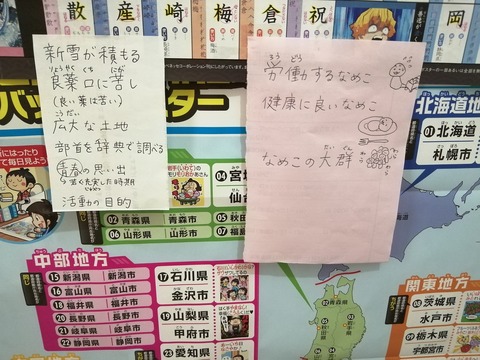 散 産 崎 梅 倉 祝 岡
新雪が積もる
りょうやく くち にが
良薬口に苦し
(良い薬は苦い)
こうだい
広大な土地
部首を辞典で調べる
青春の思い出
↳若く充実した時期
活動の目的
ろう どう
労働するなめこ
健康に良いなめこ
なめこの大群
北海道地
01 北海道
札幌市
04 宮城
仙台
02 青森県
青森市
05 秋田
06 山形県
山形市
中部地方
15 新潟県 新潟市
16 富山県 富山市
18 福井県 福井市
20 長野県 長野市
21 岐阜県 岐阜市
22 静岡県 静岡市
17 石川県
金沢市
19 山梨県
甲府市
23 愛知県
02 青森県
関東地方
08 茨城県
水戸市
09 栃木県
宇都宮市